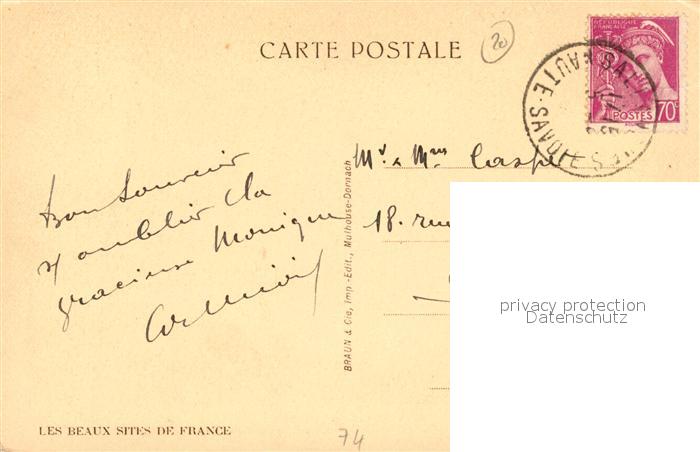 CARTE POSTALE
20
RÉPUBLIQUE FRANÇAISE
POSTES 70c
HAUTE-SAVOIE
Mr & Mme
18. rue
Bon Souvenir
oublier la
gracieuse Monique
BRAUN & Cie, Imp.-Edit., Mulhouse-Dornach
privacy protection
Datenschutz
LES BEAUX SITES DE FRANCE
74